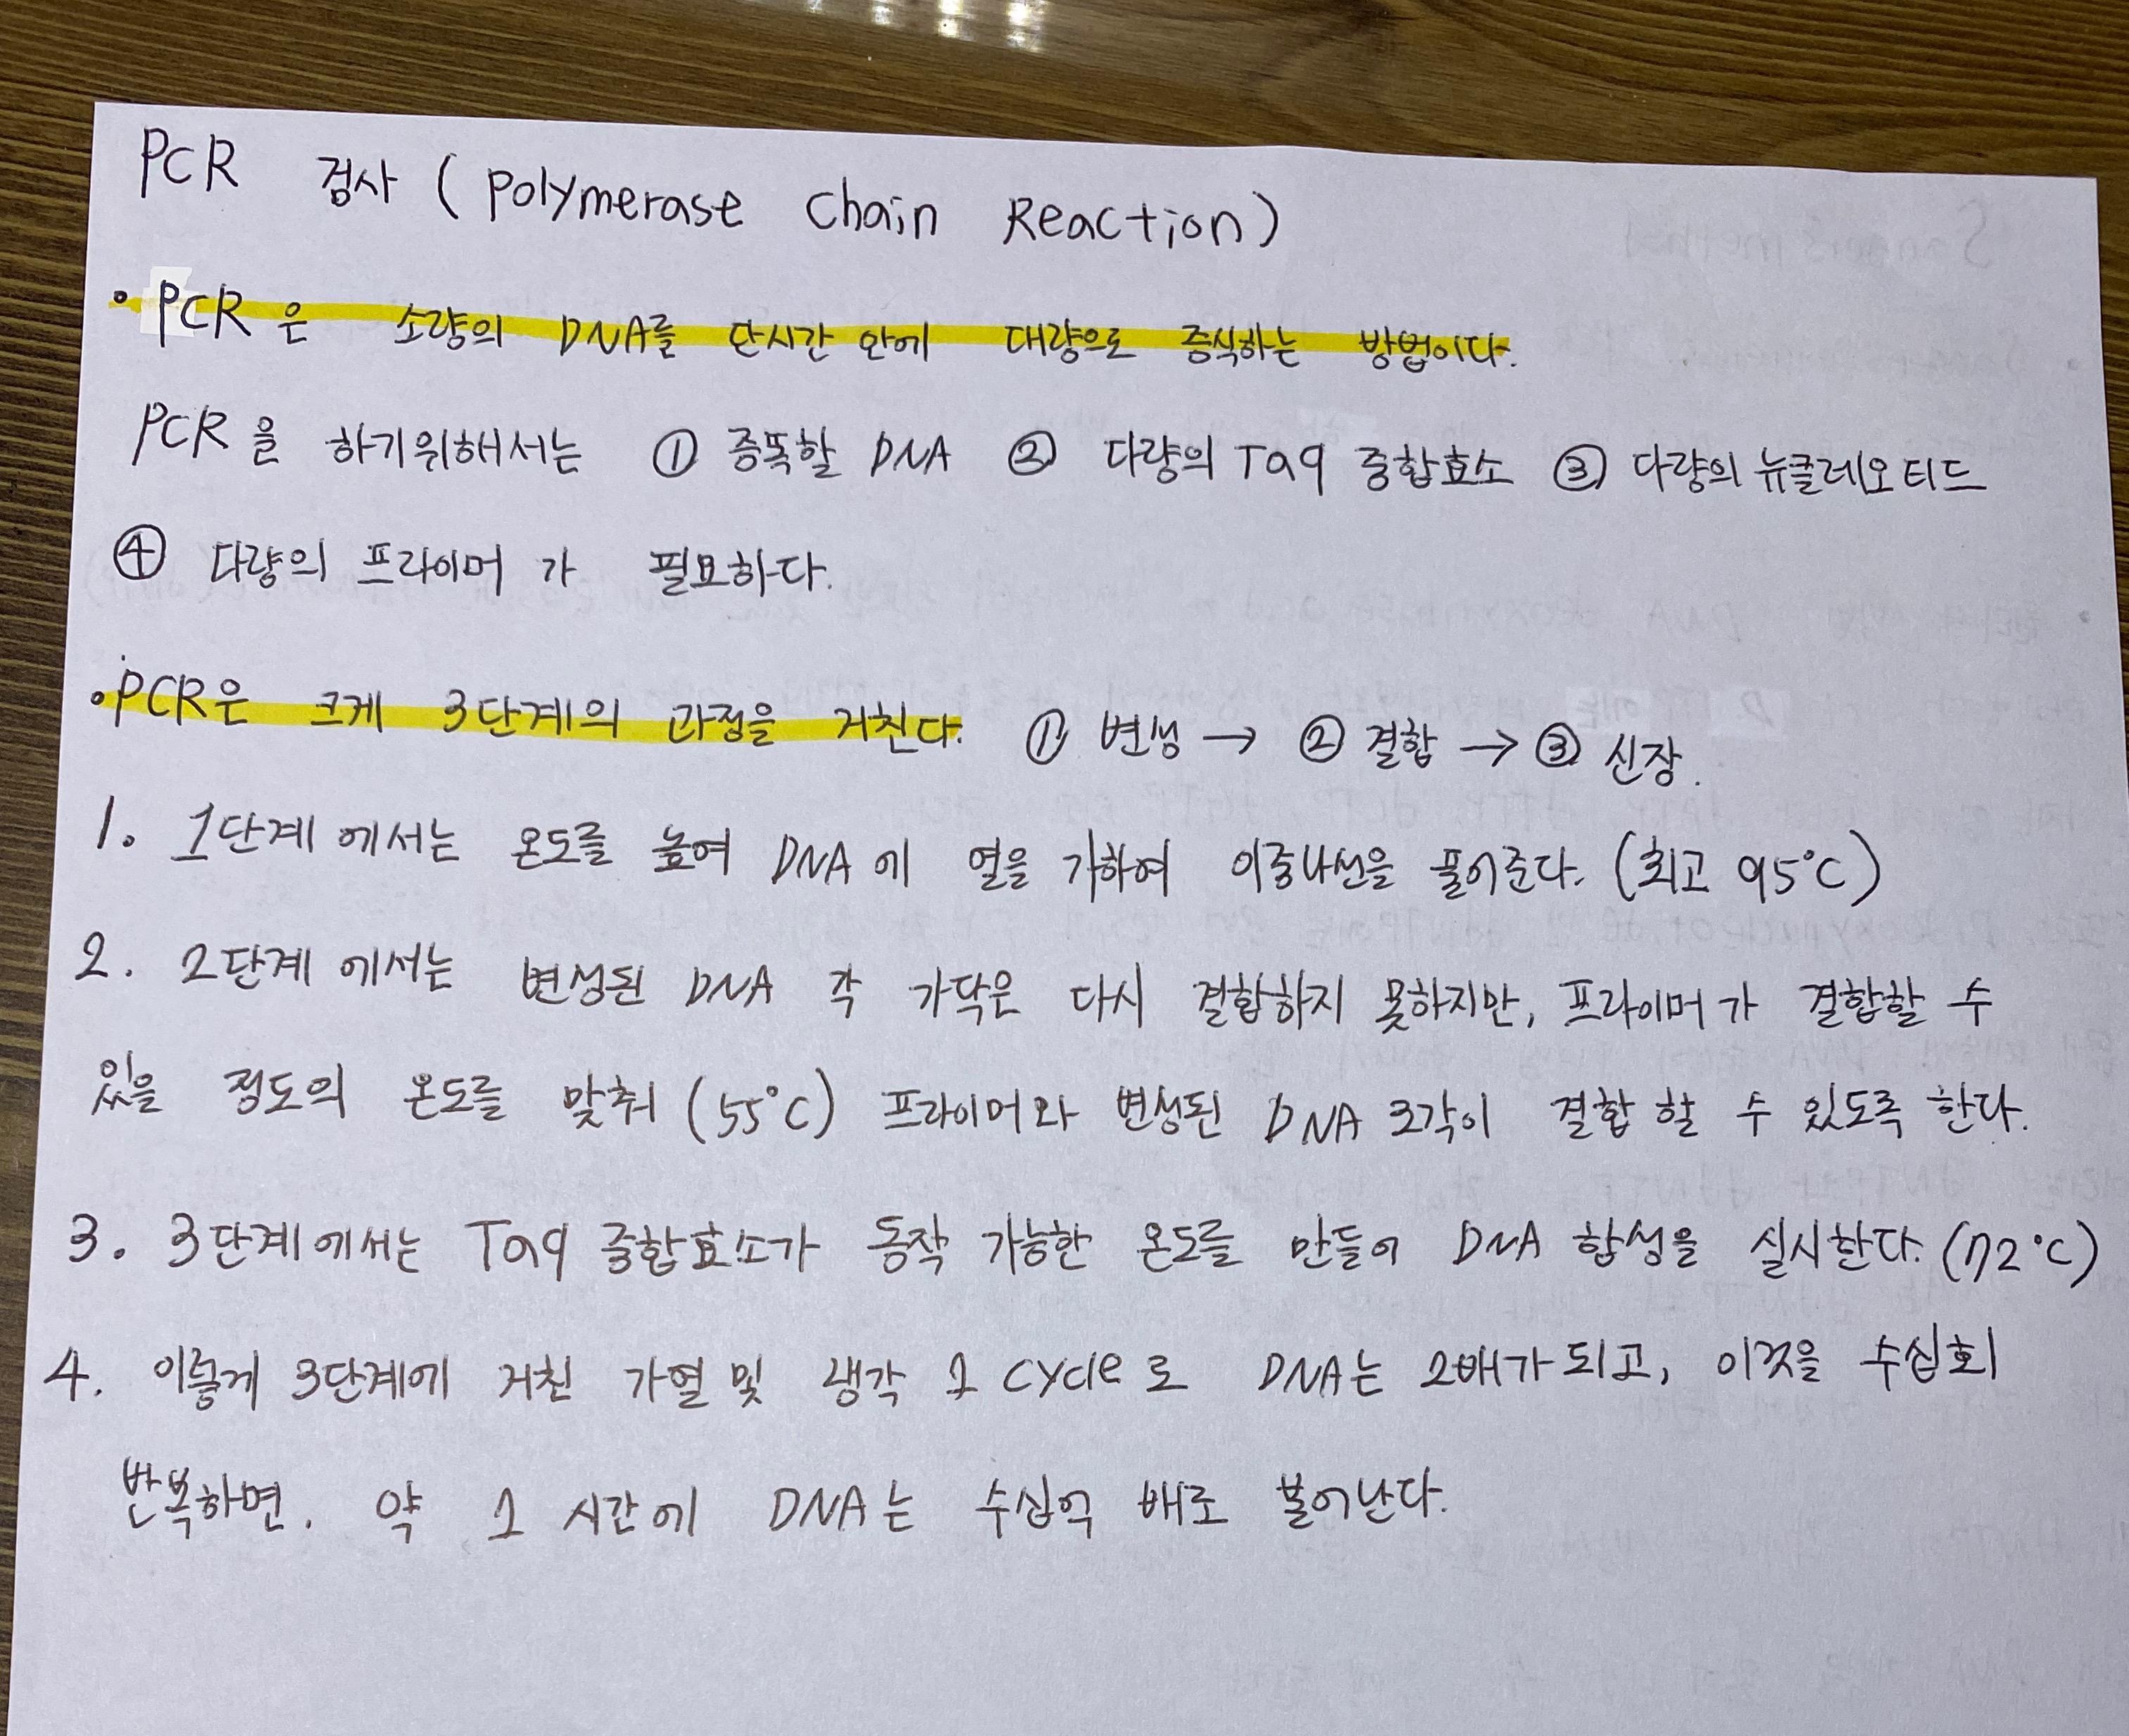 PCR 검사 ( Polymerase Chain Reaction )
• PCR 은 소량의 DNA를 단시간 안에 대량으로 증식하는 방법이다.
PCR을 하기위해서는 ① 증폭할 DNA ② 다량의 Taq 중합효소 ③ 다량의 뉴클레오티드
④ 다량의 프라이머 가 필요하다.
• PCR은 크게 3단계의 과정을 거친다. ① 변성 → ② 결합 → ③ 신장.
1. 1단계 에서는 온도를 높여 DNA에 열을 가하여 이중나선을 풀어준다. (최고 95°C)
2. 2단계 에서는 변성된 DNA 각 가닥은 다시 결합하지 못하지만, 프라이머가 결합할 수
있을 정도의 온도를 맞춰 (55°C) 프라이머와 변성된 DNA 조각이 결합 할 수 있도록 한다.
3. 3단계에서는 Taq 중합효소가 동작 가능한 온도를 만들어 DNA 합성을 실시한다. (72°C)
4. 이렇게 3단계에 거친 가열 및 냉각 1 cycle로 DNA는 2배가 되고, 이것을 수십회
반복하면. 약 1 시간에 DNA는 수십억 배로 불어난다.